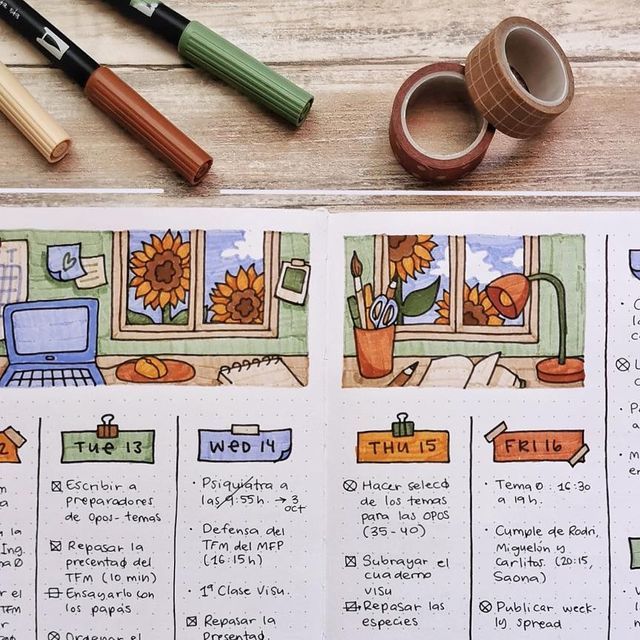 TUE 13
☒ Escribir a
preparadores
de opos-temas
☒ Repasar la
presentaø del
TFM (10 min)
Ensayarlo con
los papás.
☒ Organizar el
WED 14
· Psiquiatra a
las 9:55h. → 3
oct
· Defensa del
TFM del MFP
(16:15h)
· 1ª Clase Visu.
☒ Repasar la
Presentaø.
THU 15
☒ Hacer selecø
de los temas
para las OPOS
(35-40)
☒ Subrayar el
cuaderno
visu
Repasar las
especies
FRI 16
· Tema 0: 16:30
a 19h.
· Cumple de Rodri,
Miguelón y
Carlitos. (20:15,
Saona)
☒ Publicar week-
ly spread